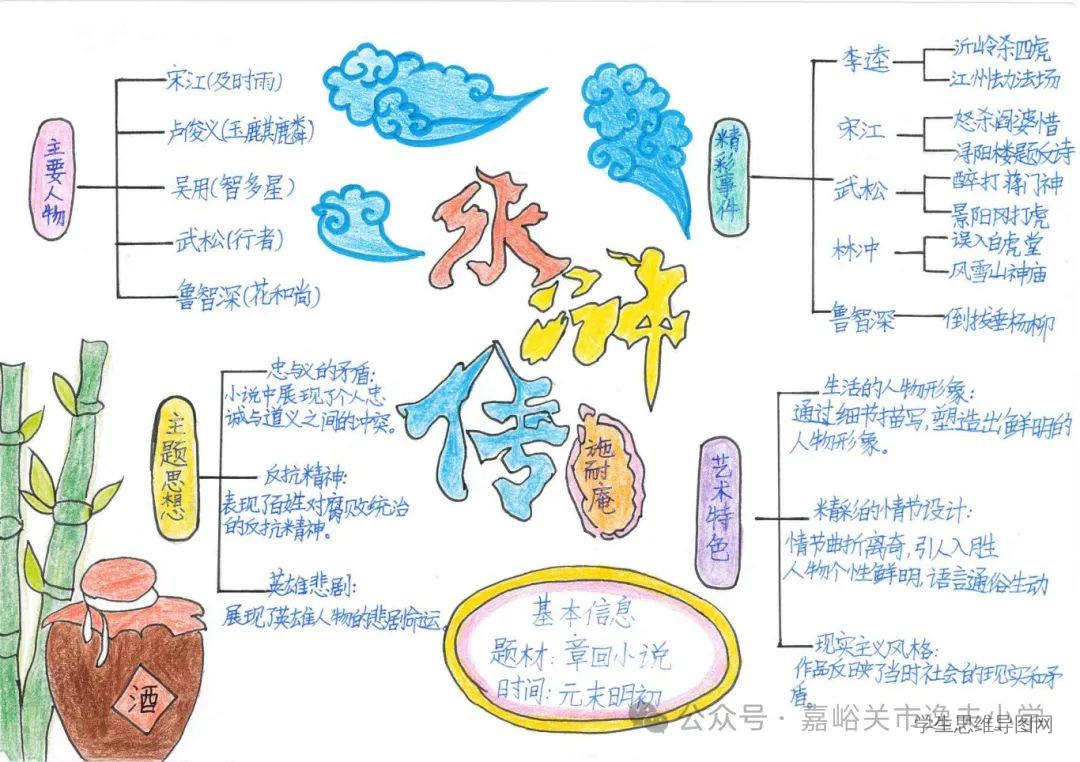 水浒传
施耐庵
主要人物
宋江(及时雨)
卢俊义(玉麒麟)
吴用(智多星)
武松(行者)
鲁智深(花和尚)
精彩事件
李逵
沂岭杀四虎
江州劫法场
宋江
怒杀阎婆惜
浔阳楼题反诗
武松
醉打蒋门神
景阳冈打虎
林冲
误入白虎堂
风雪山神庙
鲁智深
倒拔垂杨柳
主题思想
忠与义的矛盾:
小说中展现了个人忠
诚与道义之间的冲突。
反抗精神:
表现了百姓对腐败统治
的反抗精神。
英雄悲剧:
展现了英雄人物的悲剧命运。
艺术特色
生活的人物形象:
通过细节描写,塑造出鲜明的
人物形象。
精彩的情节设计:
情节曲折离奇,引人入胜
人物个性鲜明,语言通俗生动
现实主义风格:
作品反映了当时社会的现实和矛
盾。
基本信息
题材:章回小说
时间:元末明初
酒
公众号·嘉峪关市逸夫小学
学生思维导图网